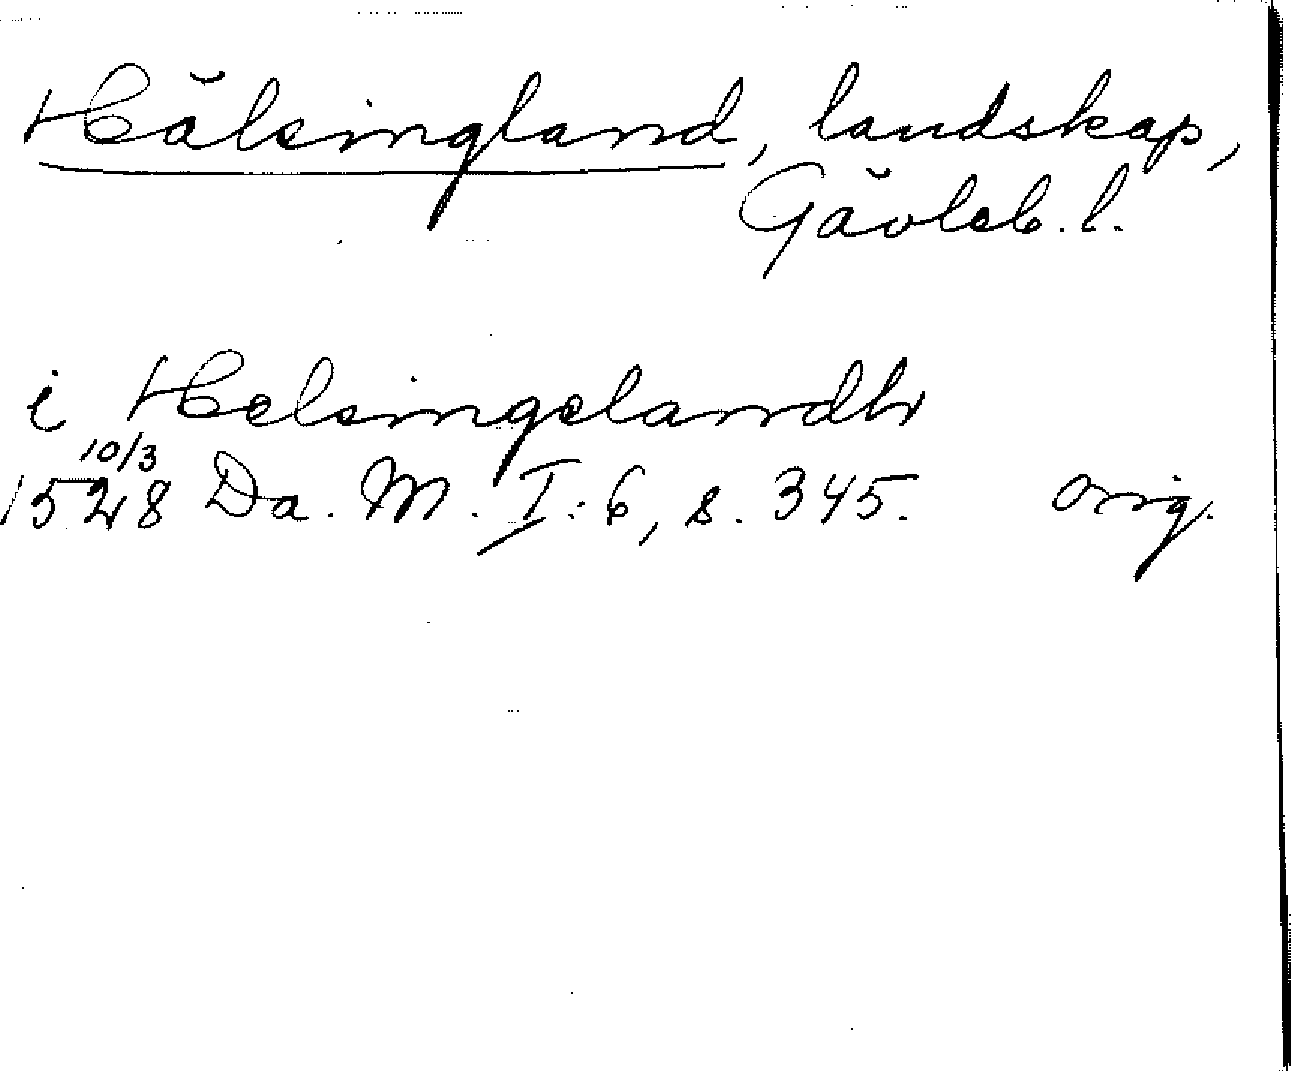 Hälsingland, landskap,
Gävleb. l.
i Helsingelandh
10/3
1528 Da. M. I: 6, s. 345. orig.